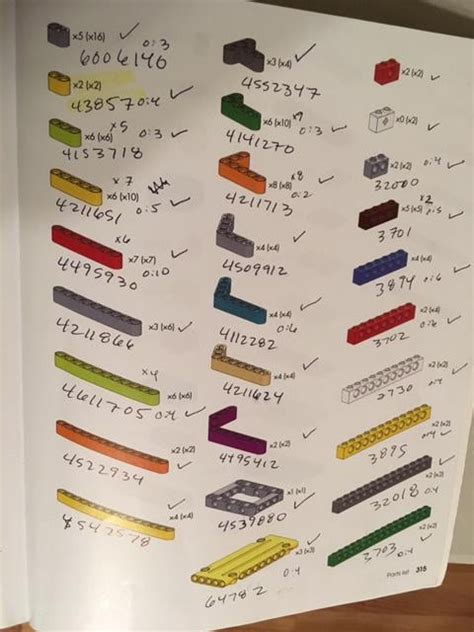 x5 (x16) ✓
6006140 0:3
x2 (x2)
43857 0:4 ✓
x5
x6 (x6) 0:3 ✓
4153718
x7
x6 (x10)
4211651 0:5 ✓
x6
x7 (x7) ✓
4495930 0:10
x3 (x6) ✓
4211866
x4
x6 (x6)
4611705 0:4 ✓
x2 (x2)
4522934 ✓
x4 (x4) ✓
4547578
x3 (x4) ✓
4552347
x9
x6 (x10) 0:3 ✓
4141270
x8
x8 (x8) ✓
4211713 0:2
x4 (x4) ✓
4509912
x4 (x4) ✓
4112282 0:6
x4 (x4) ✓
4211624
x2 (x2) ✓
4495412
x1 (x1) ✓
4539880
x3 (x3) ✓
64782 0:4
x2 (x2) ✓
x0 (x2) ✓
x2 (x2) 0:4 ✓
32000
x2
x5 (x5) 0:5 ✓
3701
x4 (x4) ✓
3894 0:6
x2 (x4) ✓
3702 0:6
x2 (x2) ✓
2730 0:4
x2 (x2) ✓
3895 0:4
x2 (x2) ✓
32018 0:4
x2 (x2) ✓
3703 0:4
Parts list 315